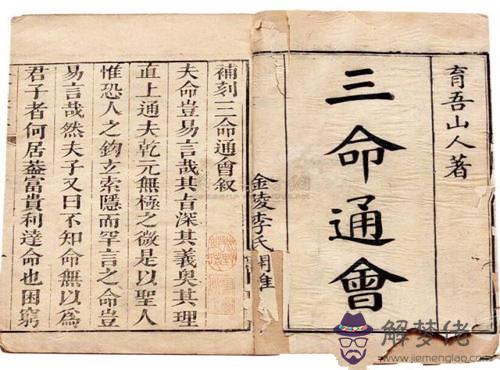 育吾山人著
三命通會
金陵李氏
補刻三命通會叙
夫命豈易言哉其旨深其義奥其理
直上通夫乾元無極之微是以聖人
惟恐人之鈎立索隱而罕言之命豈
易言哉然夫子又曰不知命無以爲
君子者何居葢富貴利達命也困窮
解梦佬
www.jiemenglao.com